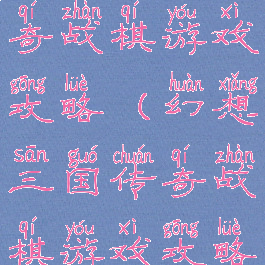 qí zhàn qí yóu xì
奇战棋游戏
gōng lüè （huàn xiǎng
攻略（幻想
sān guó chuán qí zhàn
三国传奇战
qí yóu xì gōng lüè
棋游戏攻略